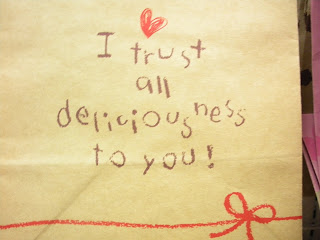 I trust
all
deliciousness
to you!